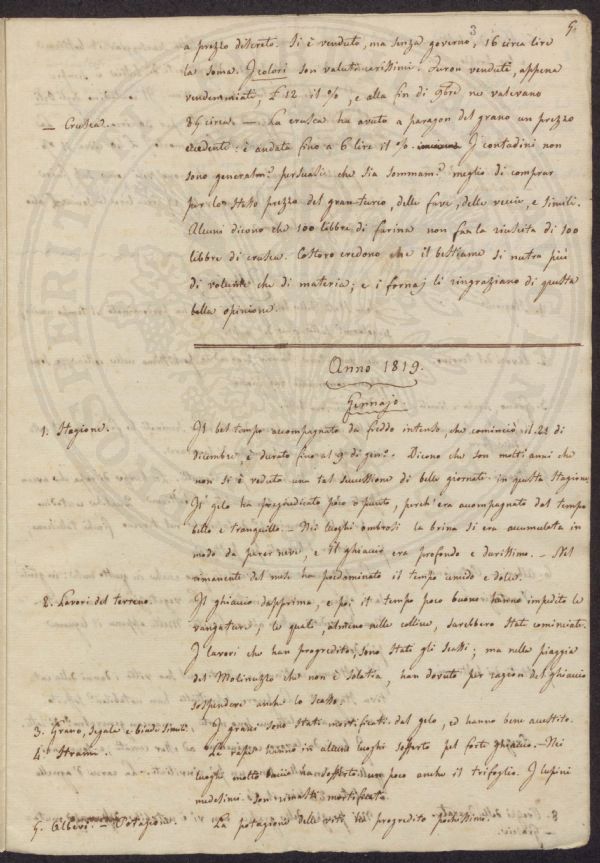 3
5.
a prezzo discreto. Si è venduto, ma senza governo, 16 circa lire
la soma. I colori son valuti carissimi. Furon venduti, appena
vendemmiati, £ 12 il %, e alla fin di 9bre ne valevano
– Crusca. 85 circa. — La crusca ha avuto a paragon del grano un prezzo
eccedente: è andata fino a 6 lire il %. I contadini non
sono generalm.e persuasi che sia sommam.e meglio di comprar
per lo stesso prezzo del gran-turco, delle fave, delle vecce, e simili.
Alcuni dicono che 100 libbre di farina non fan la riuscita di 100
libbre di crusca. Costoro credono che il bestiame si nutra più
di volume che di materia; e i fornaj li ringraziano di questa
bella opinione.
Anno 1819.
Gennajo.
1. Stagione. Il bel tempo accompagnato da freddo intenso, che cominciò il 21 di
Dicembre, è durato fino al 9 di gen.o. Dicono che son molti anni che
non si è veduto una tal successione di belle giornate in questa stagione.
Il gelo ha pregiudicato poco o punto, perch'era accompagnato dal tempo
bello e tranquillo. — Nei luoghi ombrosi la brina si era accumulata in
modo da parer neve, e il ghiaccio era profondo e durissimo. — Nel
rimanente del mese ha predominato il tempo umido e dolce.
2. Lavori del terreno. Il ghiaccio dapprima, e poi il tempo poco buono hanno impedito le
vangature, le quali, almeno nelle colline, sarebbero state cominciate.
I lavori che han progredito, sono stati gli scassi; ma nella piaggia
del Molinuzzo che non è solatia, han dovuto per ragion del ghiaccio
sospendere anche lo scasso.
3. Grano, segale e biade simili. I grani sono stati mortificati dal gelo, ed hanno bene accestito.
4. Strami. Le rape hanno in alcuni luoghi sofferto pel forte ghiaccio. — Nei
luoghi molto bacìo ha sofferto un poco anche il trifoglio. I lupini
medesimi son rimasti mortificati.
5. Alberi. — Potagione. La potagione delle viti ha progredito pochissimo.